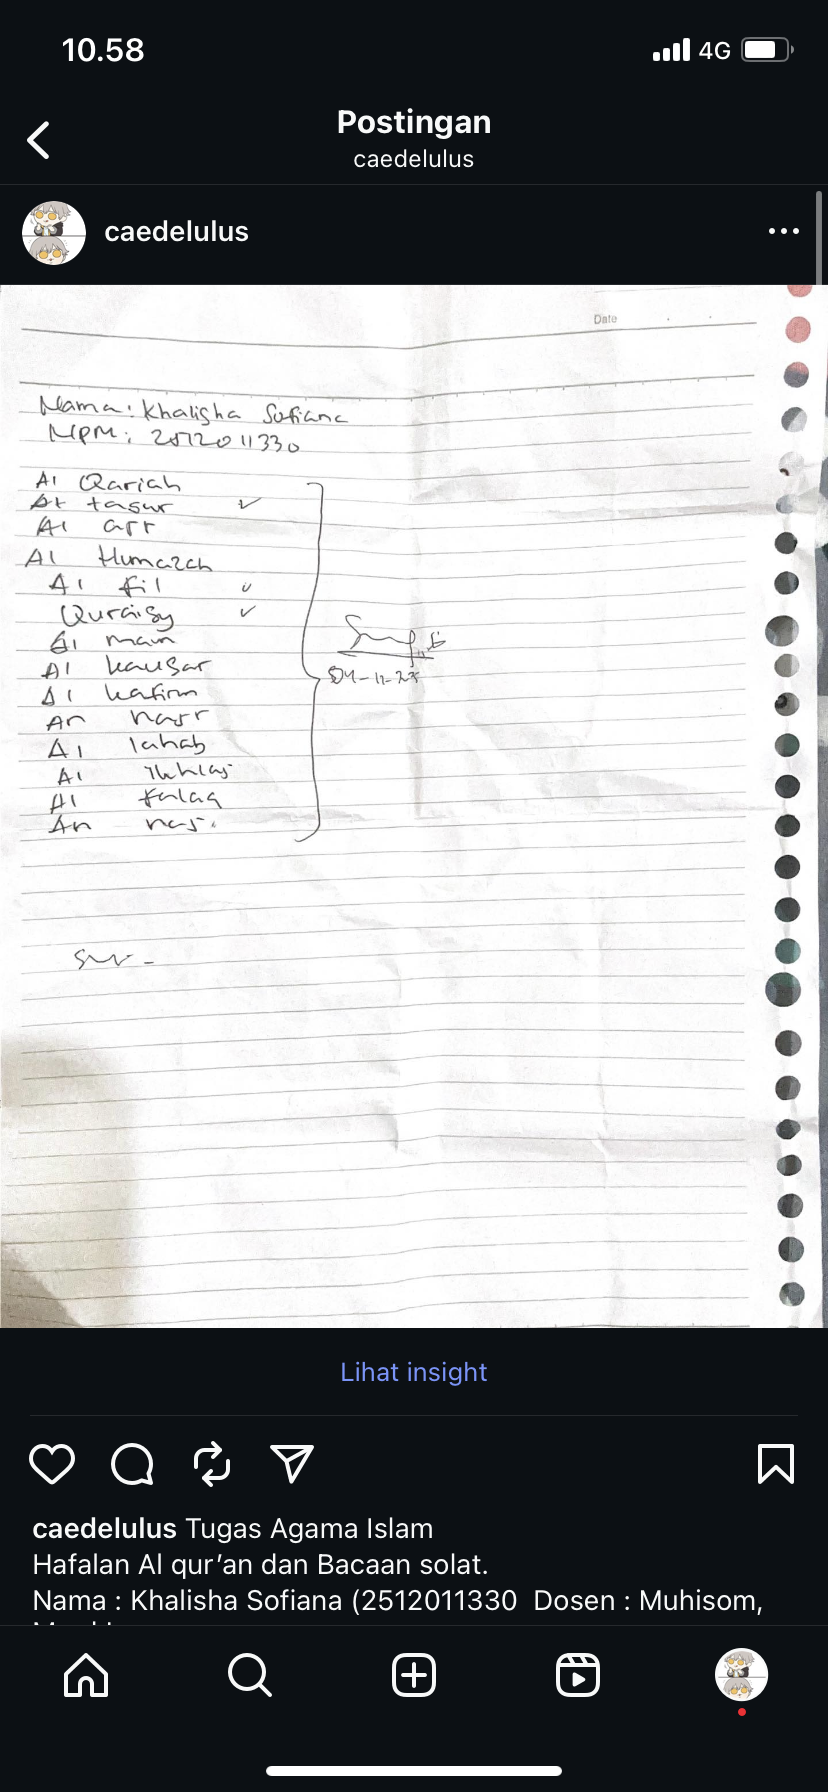 10.58
4G
Postingan
caedelulus
caedelulus
Date
Nama: Khalisha Sofiana
NPM: 2512011330
Al Qariah
At tasur
Al asr
Al Humazah
Al fil
Quraisy
Al maun
Al kausar
Al kafirun
An nasr
Al lahab
Al Ikhlas
Al falaq
An nas.
04-12-25
Lihat insight
caedelulus Tugas Agama Islam
Hafalan Al qur'an dan Bacaan solat.
Nama : Khalisha Sofiana (2512011330 Dosen : Muhisom,